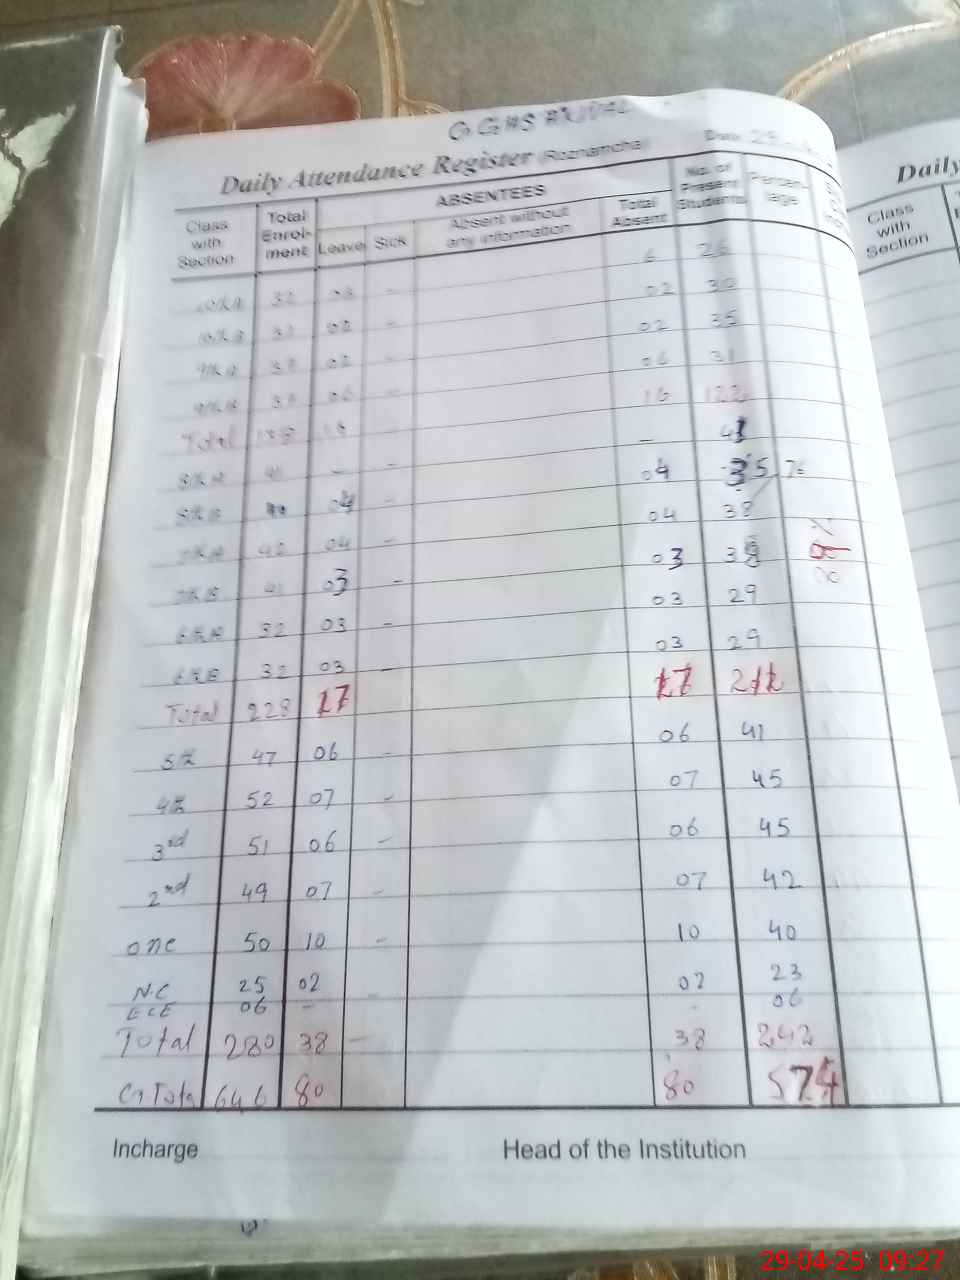 G. G. H S
Daily Attendance Register (Roznamcha) Date
Class with Section Total Enrol-ment ABSENTEES No. of Present Students Percen-tage
Leave Sick Absent without any information Total Absent
10th A 32 - 6 26
10th B 32 02 - 02 30
9th A 37 02 - 02 35
9th B 37 06 - 06 31
Total 138 16 16 122
8th A 41 - - - 41
8th B 04 - 04 35
7th A 42 04 - 04 38
7th B 41 03 - 03 38
6th A 32 03 - 03 29
6th B 32 03 - 03 29
Total 228 17 17 211
5th 47 06 - 06 41
4th 52 07 - 07 45
3rd 51 06 - 06 45
2nd 49 07 - 07 42
one 50 10 - 10 40
N.C 25 02 02 23
ECE 06 - - 06
Total 280 38 - 38 242
G.Total 646 80 80
Incharge Head of the Institution
Daily
Class with Section
29-04-25 09:27